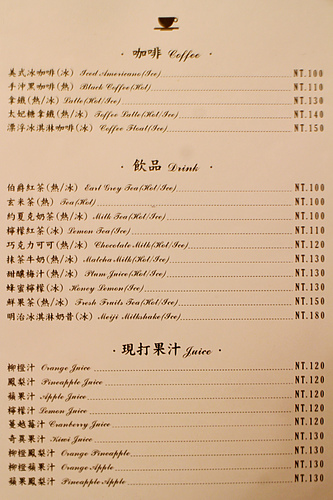 · 咖啡 Coffee ·
美式冰咖啡(冰) Iced Americano(Ice) NT.100
手沖黑咖啡(熱) Black Coffee(Hot) NT.110
拿鐵(熱/冰) Latte(Hot/Ice) NT.130
太妃糖拿鐵(熱/冰) Toffee Latte(Hot/Ice) NT.140
漂浮冰淇淋咖啡(冰) Coffee Float(Ice) NT.150
· 飲品 Drink ·
伯爵紅茶(熱/冰) Earl Grey Tea(Hot/Ice) NT.100
玄米茶(熱) Tea(Hot) NT.100
約夏克奶茶(熱/冰) Milk Tea(Hot/Ice) NT.100
檸檬紅茶(冰) Lemon Tea(Ice) NT.110
巧克力可可(熱/冰) Chocolate Milk(Hot/Ice) NT.120
抹茶牛奶(熱/冰) Matcha Milk(Hot/Ice) NT.130
甜釀梅汁(熱/冰) Plum Juice(Hot/Ice) NT.130
蜂蜜檸檬(冰) Honey Lemon(Ice) NT.130
鮮果茶(熱/冰) Fresh Fruits Tea(Hot/Ice) NT.150
明治冰淇淋奶昔(冰) Meiji Milkshake(Ice) NT.180
· 現打果汁 Juice ·
柳橙汁 Orange Juice NT.120
鳳梨汁 Pineapple Juice NT.120
蘋果汁 Apple Juice NT.120
檸檬汁 Lemon Juice NT.120
蔓越莓汁 Cranberry Juice NT.120
奇異果汁 Kiwi Juice NT.130
柳橙鳳梨汁 Orange Pineapple NT.130
柳橙蘋果汁 Orange Apple NT.130
蘋果鳳梨汁 Pineapple Apple NT.130